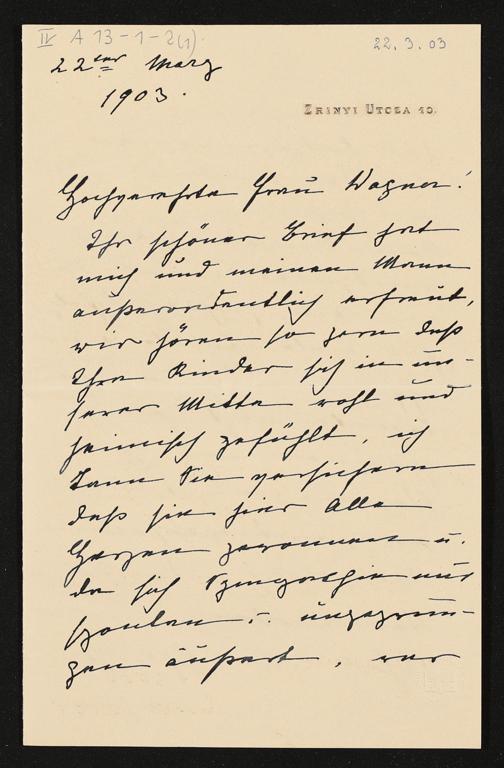 IV A 13-1-2(1).
22. 3. 03
22ter März
1903.
ZRINYI UTCZA 10.
Hochverehrte Frau Wagner!
Ihr schöner Brief hat
mich und meinen Mann
außerordentlich erfreut,
wir hören so gern daß
Ihre Kinder sich in un-
serer Mitte wohl und
heimisch gefühlt, ich
kann Sie versichern
daß sie hier Aller
Herzen gewonnen u.
da sich Sympathie nur
spontan u. ungezwun-
gen äußert, war